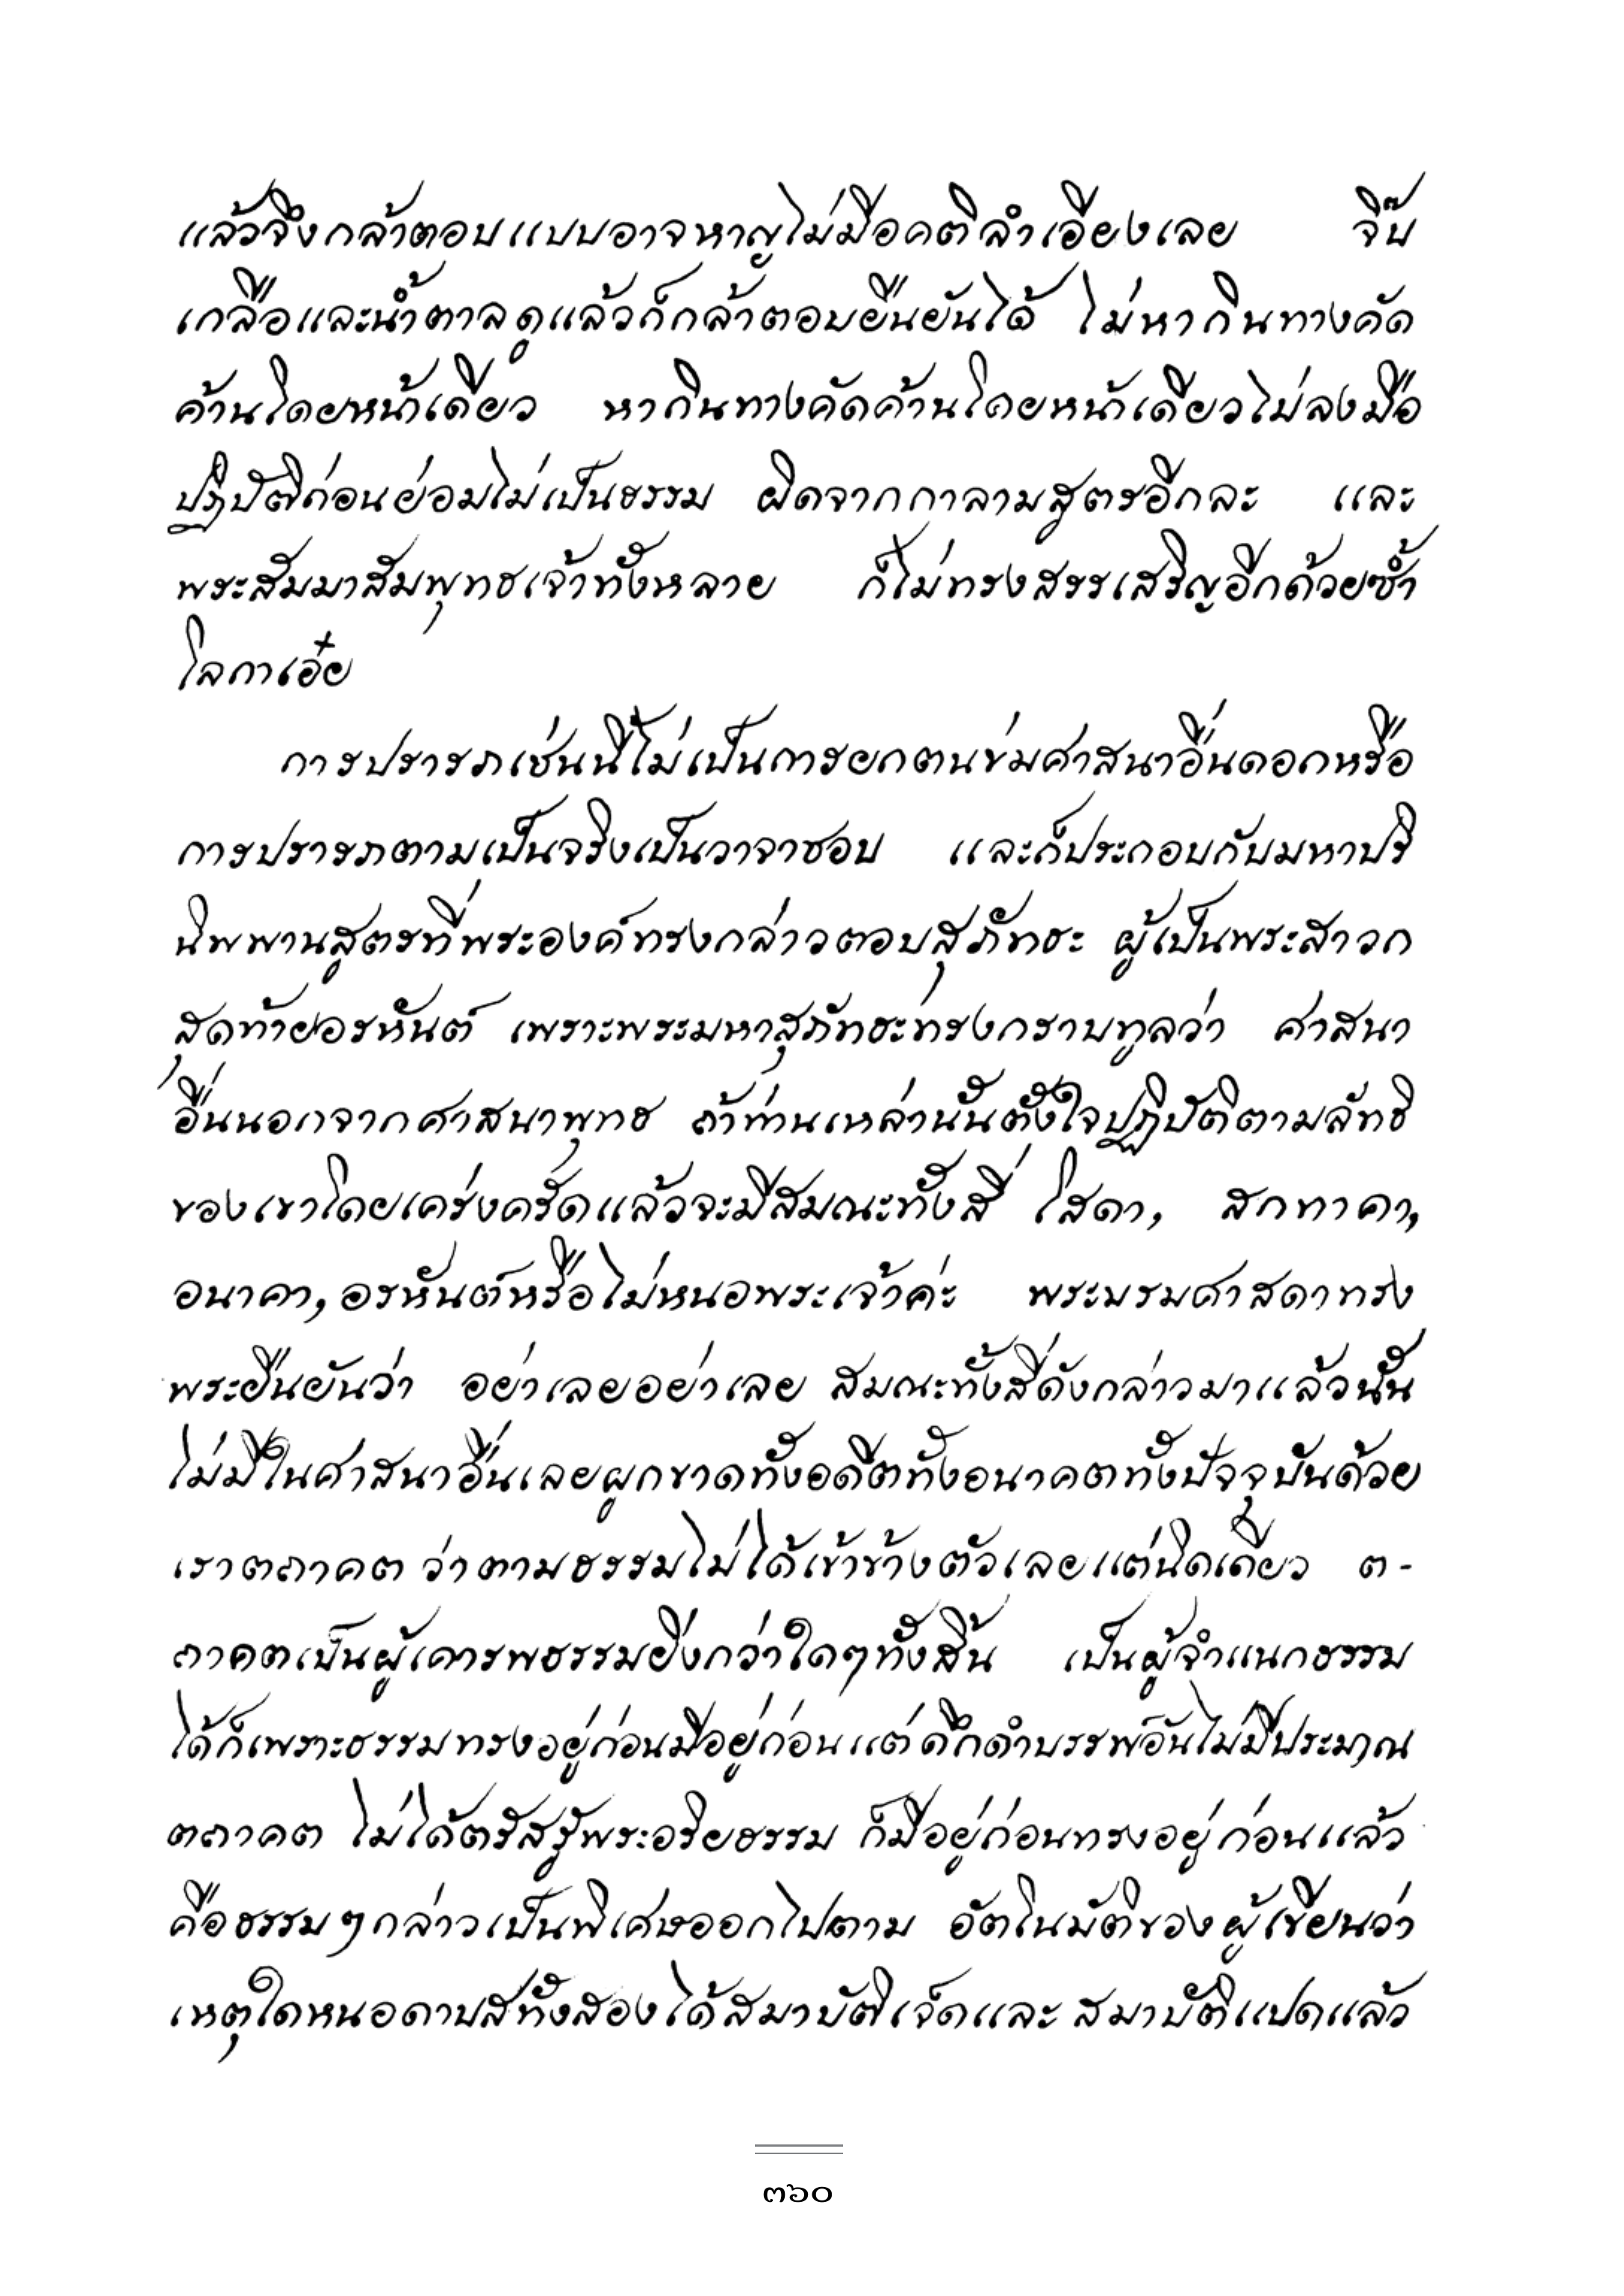 แล้วจึงกล้าตอบแบบอาจหาญไม่มีอคติลำเอียงเลย จิ๊บ
เกลือและน้ำตาลดูแล้วก็กล้าตอบยืนยันได้ ไม่หากินทางคัด
ค้านโดยหน้าเดียว หากินทางคัดค้านโดยหน้าเดียวไม่ลงมือ
ปฏิบัติก่อนย่อมไม่เป็นธรรม ผิดจากกาลามสูตรอีกละ และ
พระสัมมาสัมพุทธเจ้าทั้งหลาย ก็ไม่ทรงสรรเสริญอีกด้วยซ้ำ
โลกาเอ๋ย
การปรารภเช่นนี้ไม่เป็นการยกตนข่มศาสนาอื่นดอกหรือ
การปรารภตามเป็นจริงเป็นวาจาชอบ และก็ประกอบกับมหาปริ
นิพพานสูตรที่พระองค์ทรงกล่าวตอบสุภัทธะ ผู้เป็นพระสาวก
สุดท้ายอรหันต์ เพราะพระมหาสุภัทธะทรงกราบทูลว่า ศาสนา
อื่นนอกจากศาสนาพุทธ ถ้าท่านเหล่านั้นตั้งใจปฏิบัติตามลัทธิ
ของเขาโดยเคร่งครัดแล้วจะมีสมณะทั้งสี่ โสดา, สกทาคา,
อนาคา, อรหันต์หรือไม่หนอพระเจ้าค่ะ พระบรมศาสดาทรง
พระยืนยันว่า อย่าเลยอย่าเลย สมณะทั้งสี่ดังกล่าวมาแล้วนั้น
ไม่มีในศาสนาอื่นเลยผูกขาดทั้งอดีตทั้งอนาคตทั้งปัจจุบันด้วย
เราตถาคต ว่าตามธรรมไม่ได้เข้าข้างตัวเลยแต่นิดเดียว ต-
ถาคตเป็นผู้เคารพธรรมยิ่งกว่าใดๆทั้งสิ้น เป็นผู้จำแนกธรรม
ได้ก็เพราะธรรมทรงอยู่ก่อนมีอยู่ก่อนแต่ดึกดำบรรพ์อันไม่มีประมาณ
ตถาคต ไม่ได้ตรัสรู้พระอริยธรรม ก็มีอยู่ก่อนทรงอยู่ก่อนแล้ว
คือธรรมๆกล่าวเป็นพิเศษออกไปตาม อัตโนมัติของผู้เขียนว่า
เหตุใดหนอดาบสทั้งสองได้สมาบัติเจ็ดและ สมาบัติแปดแล้ว
๓๖๐